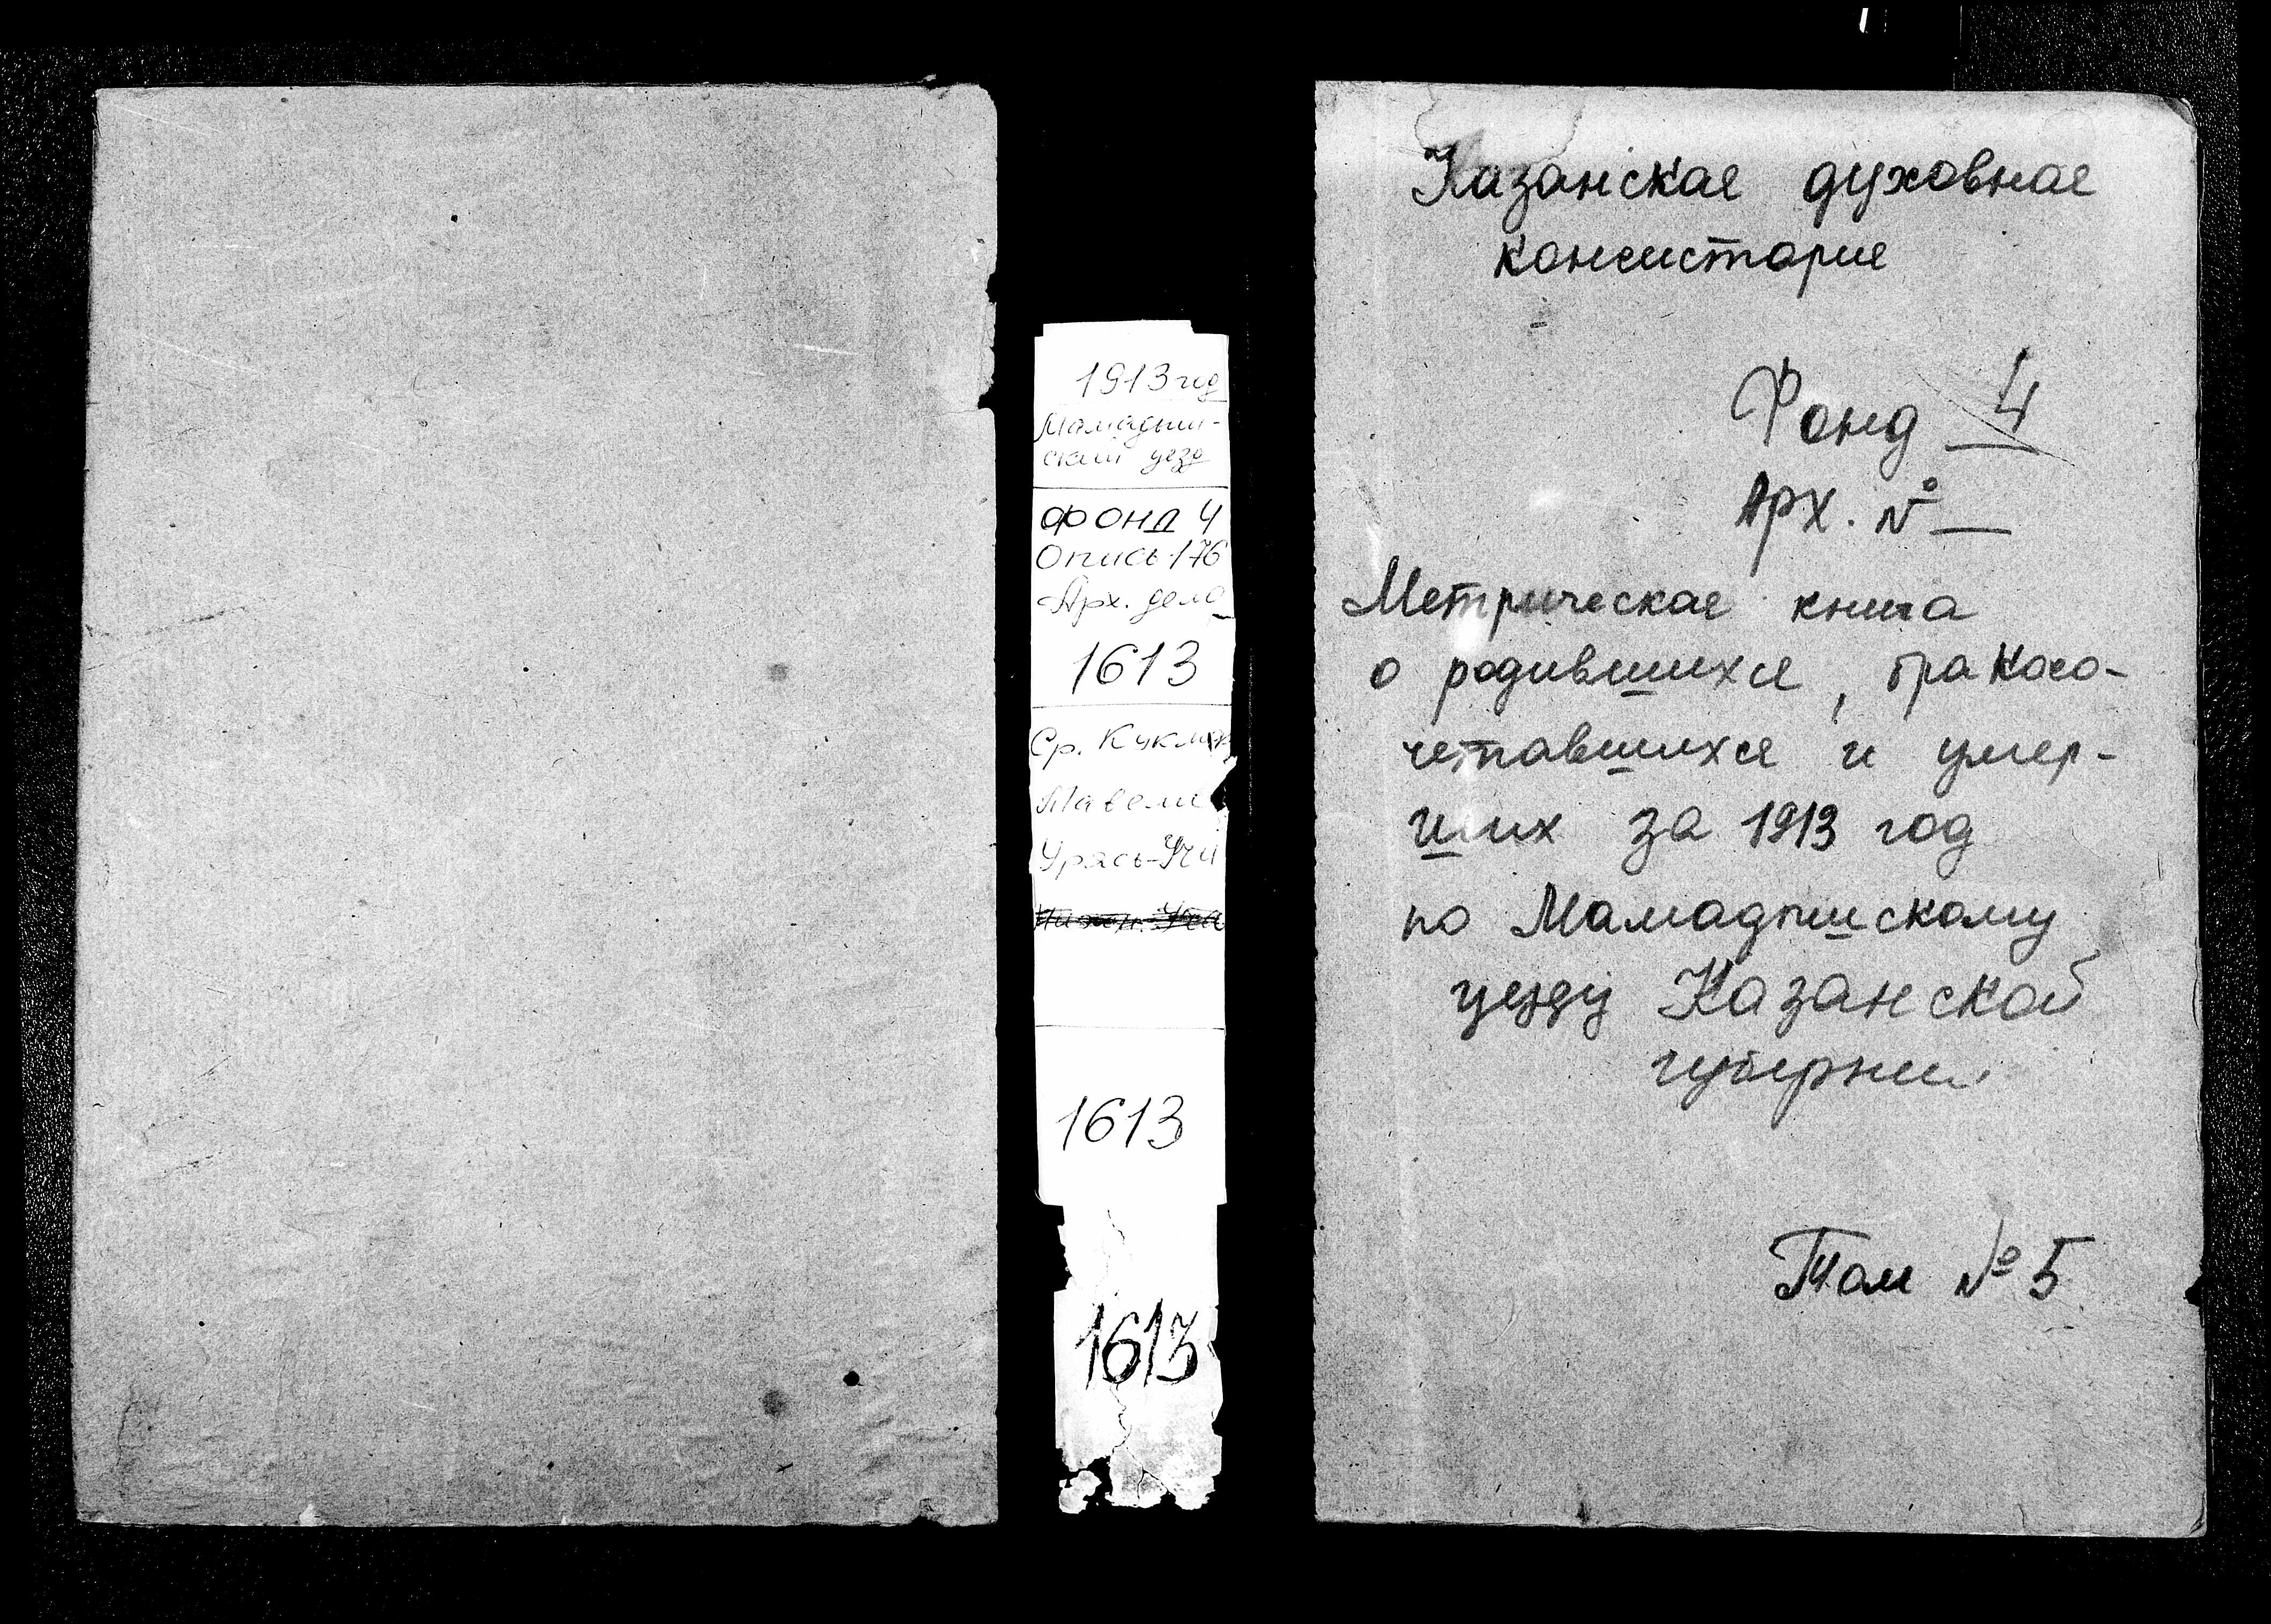 1913 год
Мамадыш-
ский уезд
фонд 4
Опись 176
Арх. дела
1613
Ср. Кукмор
Мавели
Урясь-Учи
1613
1613
Казанская духовная
консистория
Фонд 4
Арх. №
Метрическая книга
о родившихся, бракосо-
четавшихся и умер-
ших за 1913 год
по Мамадышскому
уезду Казанской
губернии
Том № 5